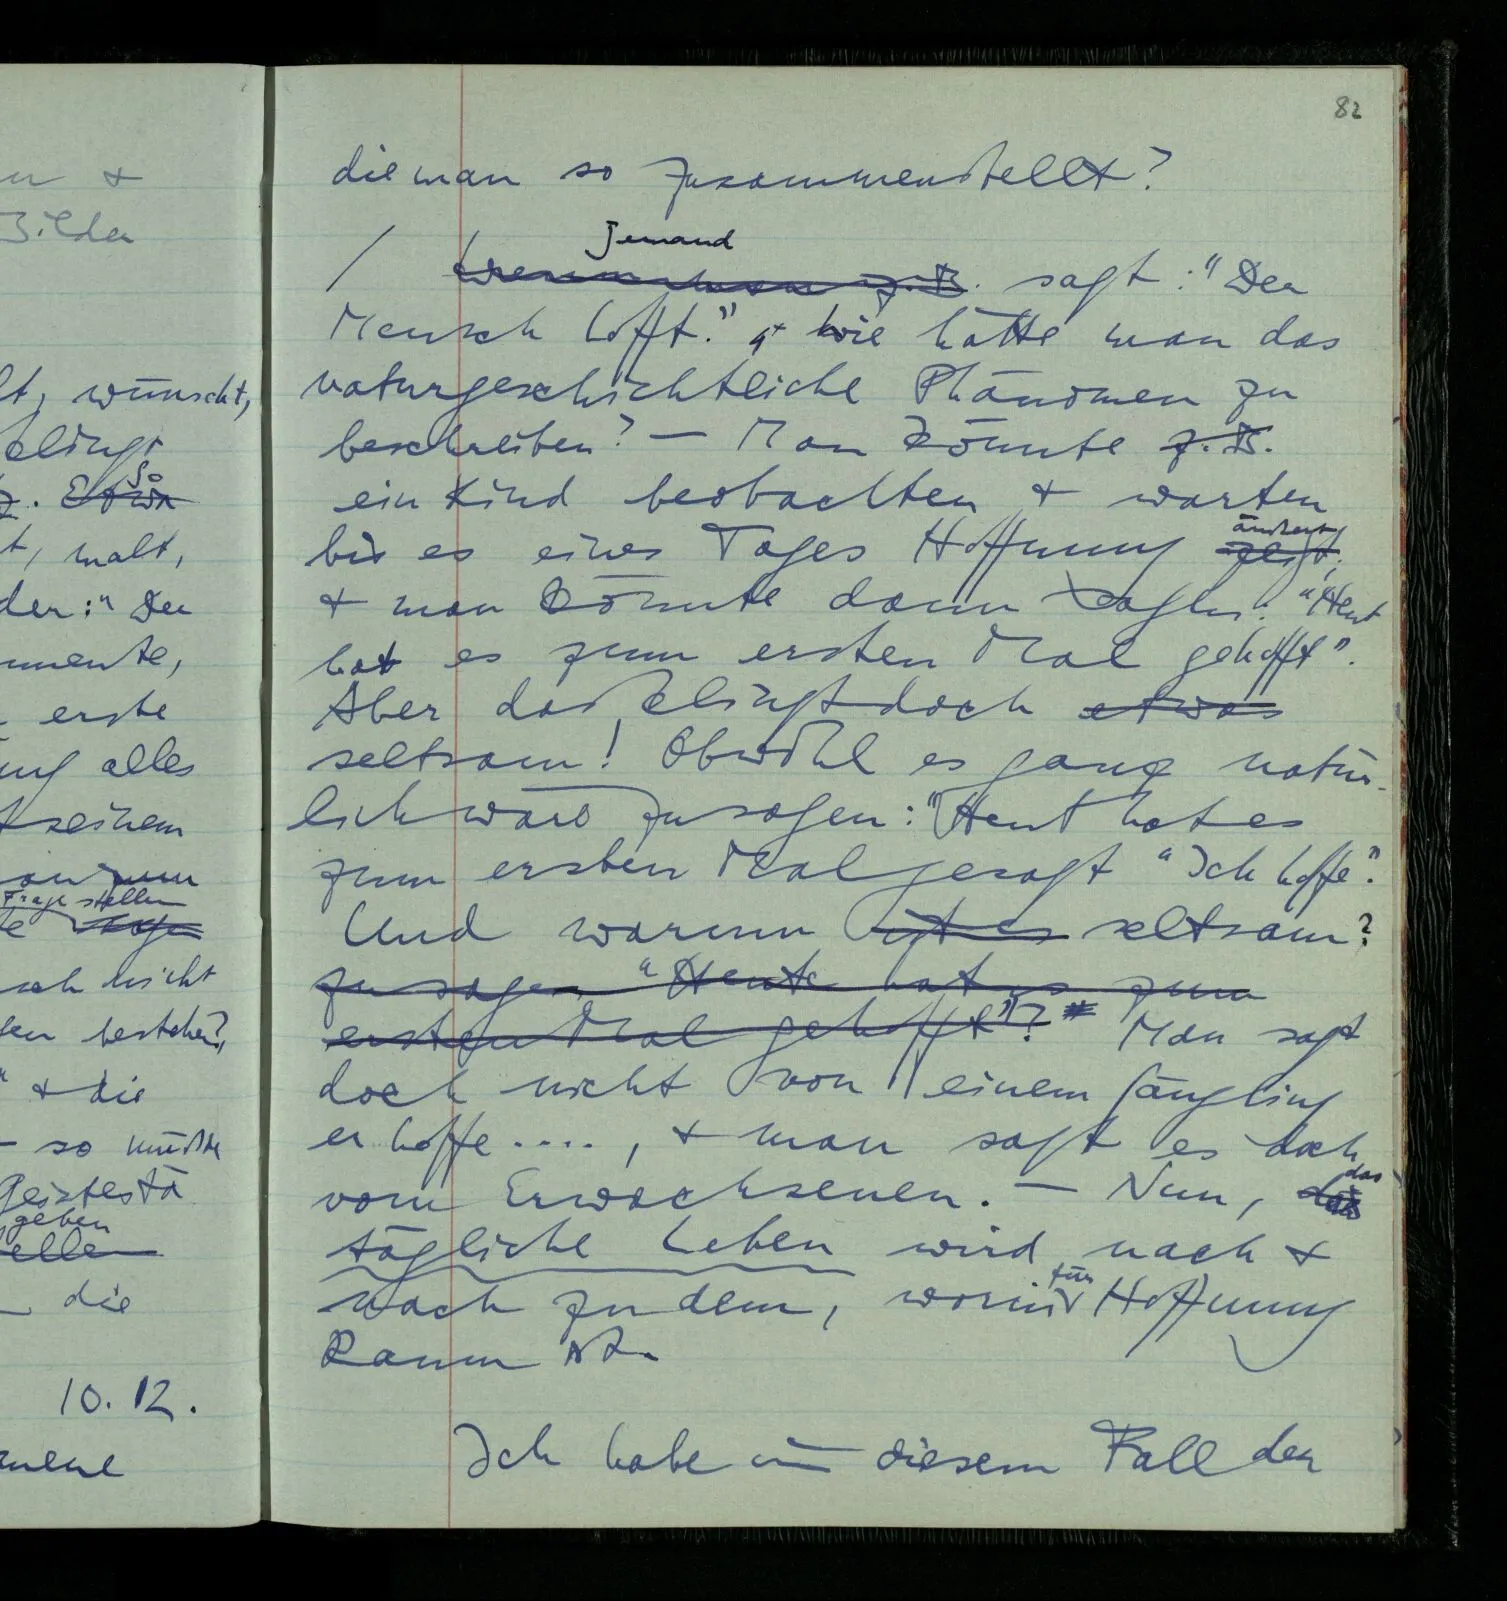 n &
Bilder
lt, wünscht,
klingt
so
z. Etwa
t, malt,
der: "Der
mente,
erste
ung alles
seinem
an zum
Frage stellen
e
sich nicht
ken bestehen?,
" & die
– so müßte
Geistestä
geben
ellen
die
10. 12.
meine
82
die man so zusammenstellt?
/ Jemand
Wenn man z.B. sagt: "Der
Mensch hofft.", wie hätte man das
naturgeschichtliche Phänomen zu
beschreiben? — Man könnte z.B.
ein Kind beobachten & warten
äußert,
bis es eines Tages Hoffnung zeigt;
& man könnte dann sagen: "Heut
hat es zum ersten Mal gehofft".
Aber das klingt doch etwas
seltsam! Obwohl es ganz natür-
lich wäre zu sagen: "Heut hat es
zum ersten Mal gesagt "Ich hoffe".
Und warum ist es seltsam?
zu sagen "Heute hat es zum
ersten Mal gehofft"? Man sagt
doch nicht von einem Säugling
er hoffe ...., & man sagt es doch
vom Erwachsenen. — Nun, das
tägliche Leben wird nach &
nach zu dem, worin für Hoffnung
Raum ist.
Ich habe in diesem Fall den